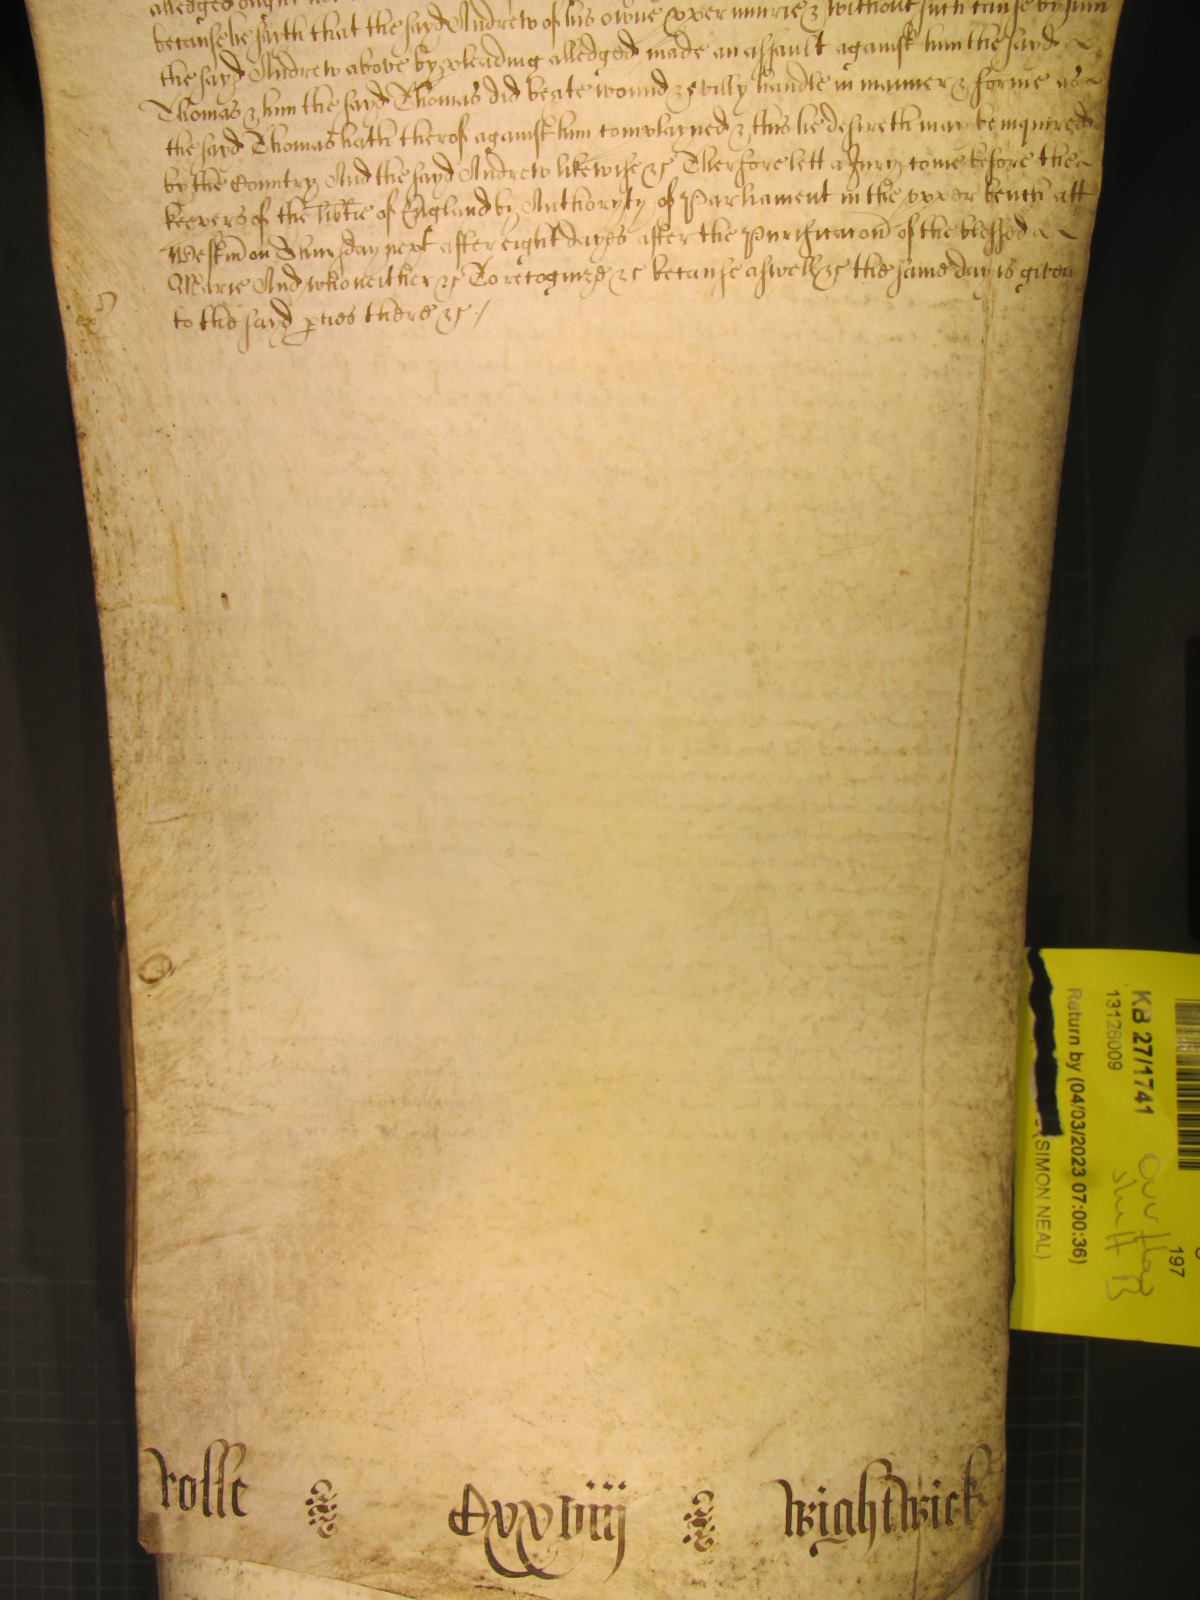 alledged ought not
because he saith that the sayd Andrew of his owne pper iniurie & without such cause by him
the sayd Andrew above by pleading alledged made an assault against him the sayd
Thomas & him the sayd Thomas did beate wound & evilly handle in manner & forme as
the sayd Thomas hath therof against him complayned & this he desireth may be inquired
by the Country And the sayd Andrew likewise &c Therfore lett a Jury come before the
keepers of the libtie of England by Authoryty of Parliament in the upper bench att
Westm on Thursday next after eight dayes after the Purificacon of the blessed
Marie And who neither &c To recognize &c because aswell &c the same day is given
to the sayd pties there &c /
rolle Cxxviiij Wightwick
KB 27/1741
13126009
Return by (04/03/2023 07:00:36)
(SIMON NEAL)
197